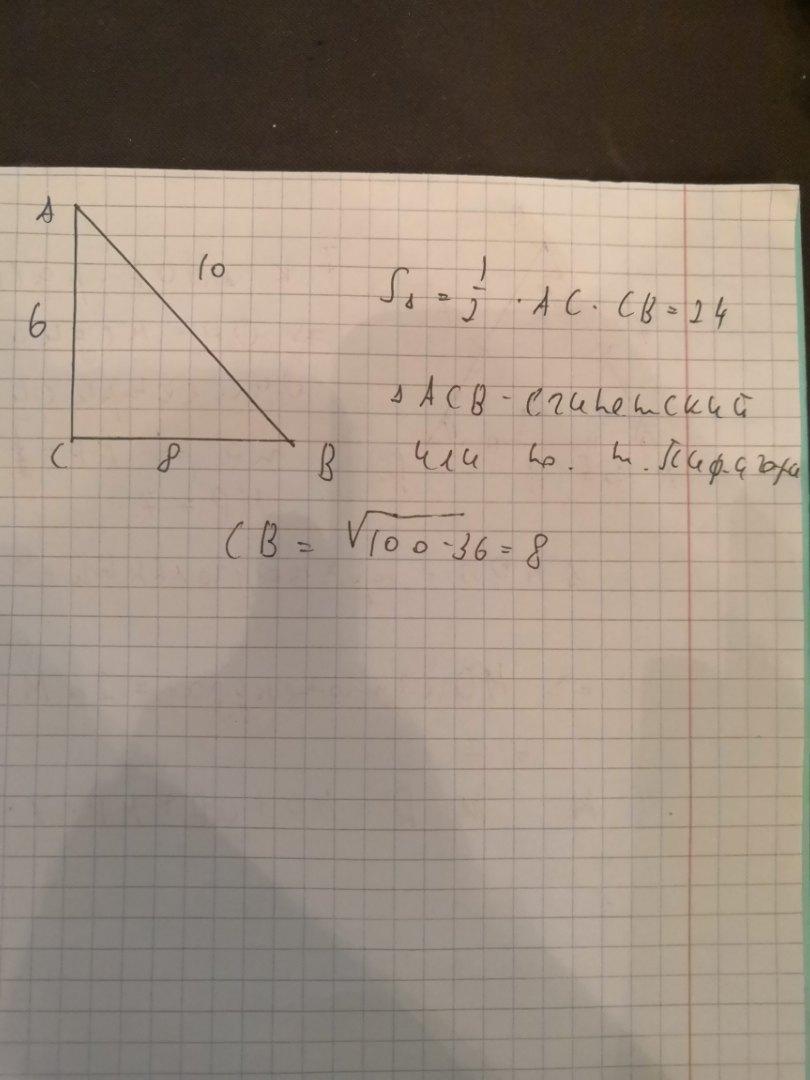 A
10
S△ = 1/2 · AC · CB = 24
6
△ACB - египетский
C
8
B
или по. т. Пифагора
CB = √100-36 = 8